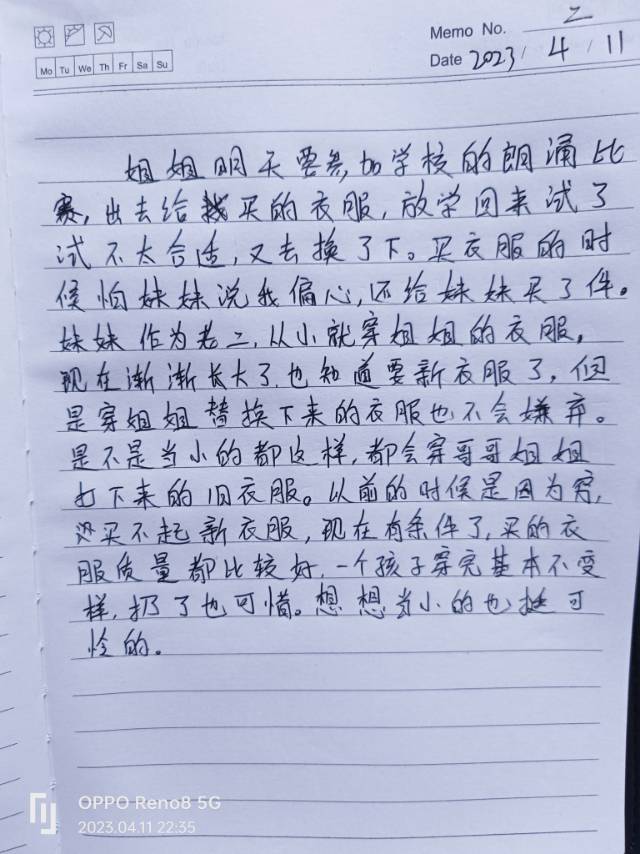 Memo No. 2
Mo Tu We Th Fr Sa Su
Date 2023/4/11
姐姐明天要参加学校的朗涌比
赛,出去给我买的衣服,放学回来试了
试不太合适,又去换了下。买衣服的时
候怕妹妹说我偏心,还给妹妹买了件。
妹妹作为老二,从小就穿姐姐的衣服,
现在渐渐长大了,也知道要新衣服了,但
是穿姐姐替换下来的衣服也不会嫌弃。
是不是当小的都这样,都会穿哥哥姐姐
打下来的旧衣服。以前的时候是因为穷,
买不起新衣服,现在有条件了,买的衣
服质量都比较好,一个孩子穿完基本不变
样,扔了也可惜。想想当小的也挺可
怜的。
OPPO Reno8 5G
2023.04.11 22:35